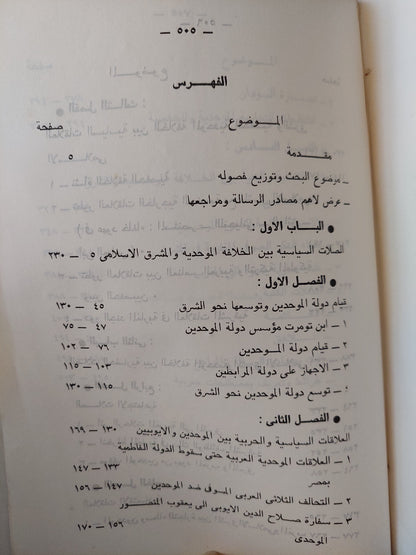 — ٥٠٥ —
الفهرس
الموضوع صفحة
مقدمة ٥
ـ موضوع البحث وتوزيع فصوله
ـ عرض لاهم مصادر الرسالة ومراجعها
● الباب الاول :
الصلات السياسية بين الخلافة الموحدية والمشرق الاسلامى ٤٥ — ٢٣٠
● الفصل الاول :
قيام دولة الموحدين وتوسعها نحو الشرق ٤٥ — ١٣٠
١ — ابن تومرت مؤسس دولة الموحدين ٤٧ — ٧٥
٢ — قيام دولة الموحدين ٧٦ — ١٠٢
٣ — الاجهاز على دولة المرابطين ١٠٣ — ١١٥
٤ — توسع دولة الموحدين نحو الشرق ١١٥ — ١٣٠
● الفصل الثانى :
العلاقات السياسية والحربية بين الموحدين والايوبيين ١٣٠ — ١٦٩
١ — العلاقات الموحدية العربية حتى سقوط الدولة الفاطمية
بمصر ١٣٣ — ١٤٧
٢ — التحالف الثلاثى العربى الصوفى ضد الموحدين ١٤٧ — ١٥٦
٣ — سفارة صلاح الدين الايوبى الى يعقوب المنصور
الموحدى ١٥٦ — ١٧٠